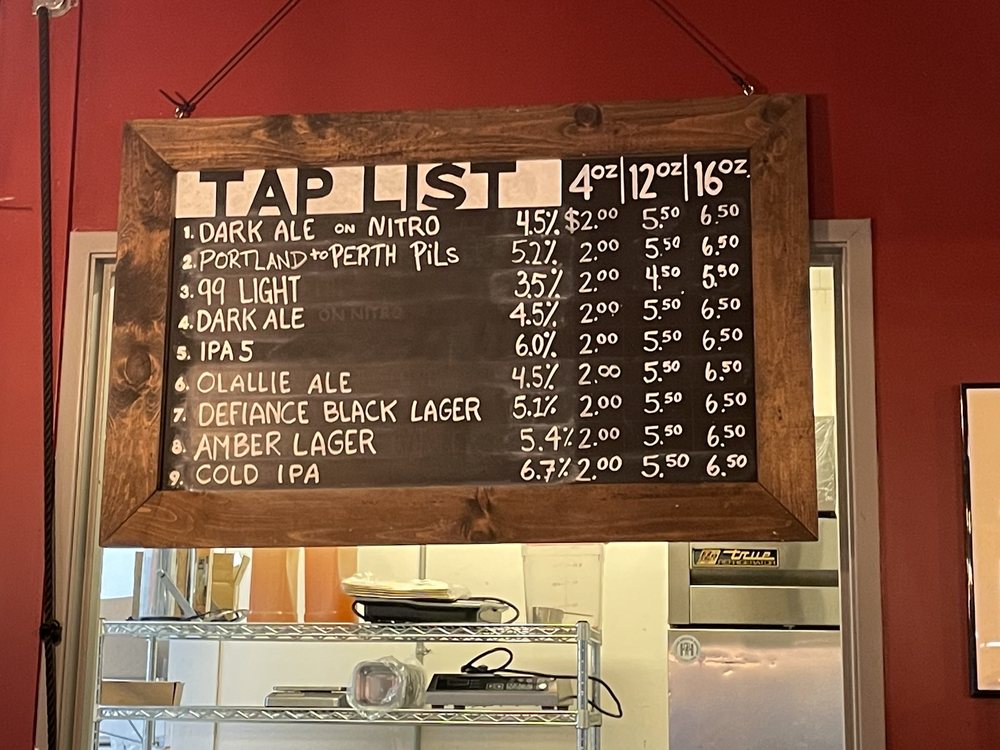 TAP LIST 4oz 12oz 16oz
1. DARK ALE ON NITRO 4.5% $2.00 5.50 6.50
2. PORTLAND to PERTH PILS 5.2% 2.00 5.50 6.50
3. 99 LIGHT 3.5% 2.00 4.50 5.50
4. DARK ALE ON NITRO 4.5% 2.00 5.50 6.50
5. IPA 5 6.0% 2.00 5.50 6.50
6. OLALLIE ALE 4.5% 2.00 5.50 6.50
7. DEFIANCE BLACK LAGER 5.1% 2.00 5.50 6.50
8. AMBER LAGER 5.4% 2.00 5.50 6.50
9. COLD IPA 6.7% 2.00 5.50 6.50
true
REFRIGERATOR